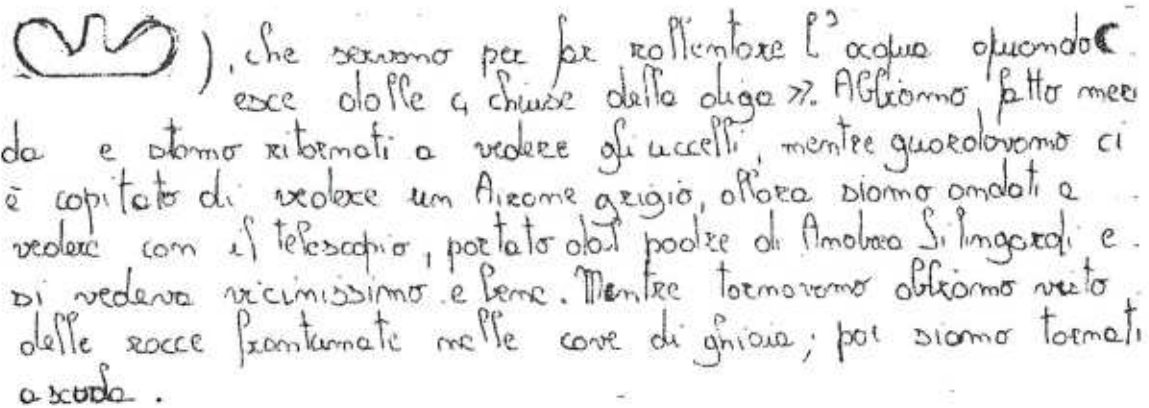 ), che servono per far rallentare l'acqua quando
esce dalle 4 chiuse della diga ». Abbiamo fatto meren
da e siamo ritornati a vedere gli uccelli, mentre guardavamo ci
è capitato di vedere un Airone grigio, allora siamo andati a
vedere con il telescopio, portato dal padre di Andrea Silingardi e
si vedeva vicinissimo e bene. Mentre tornavamo abbiamo visto
delle rocce frantumate nelle cave di ghiaia; poi siamo tornati
a scuola.